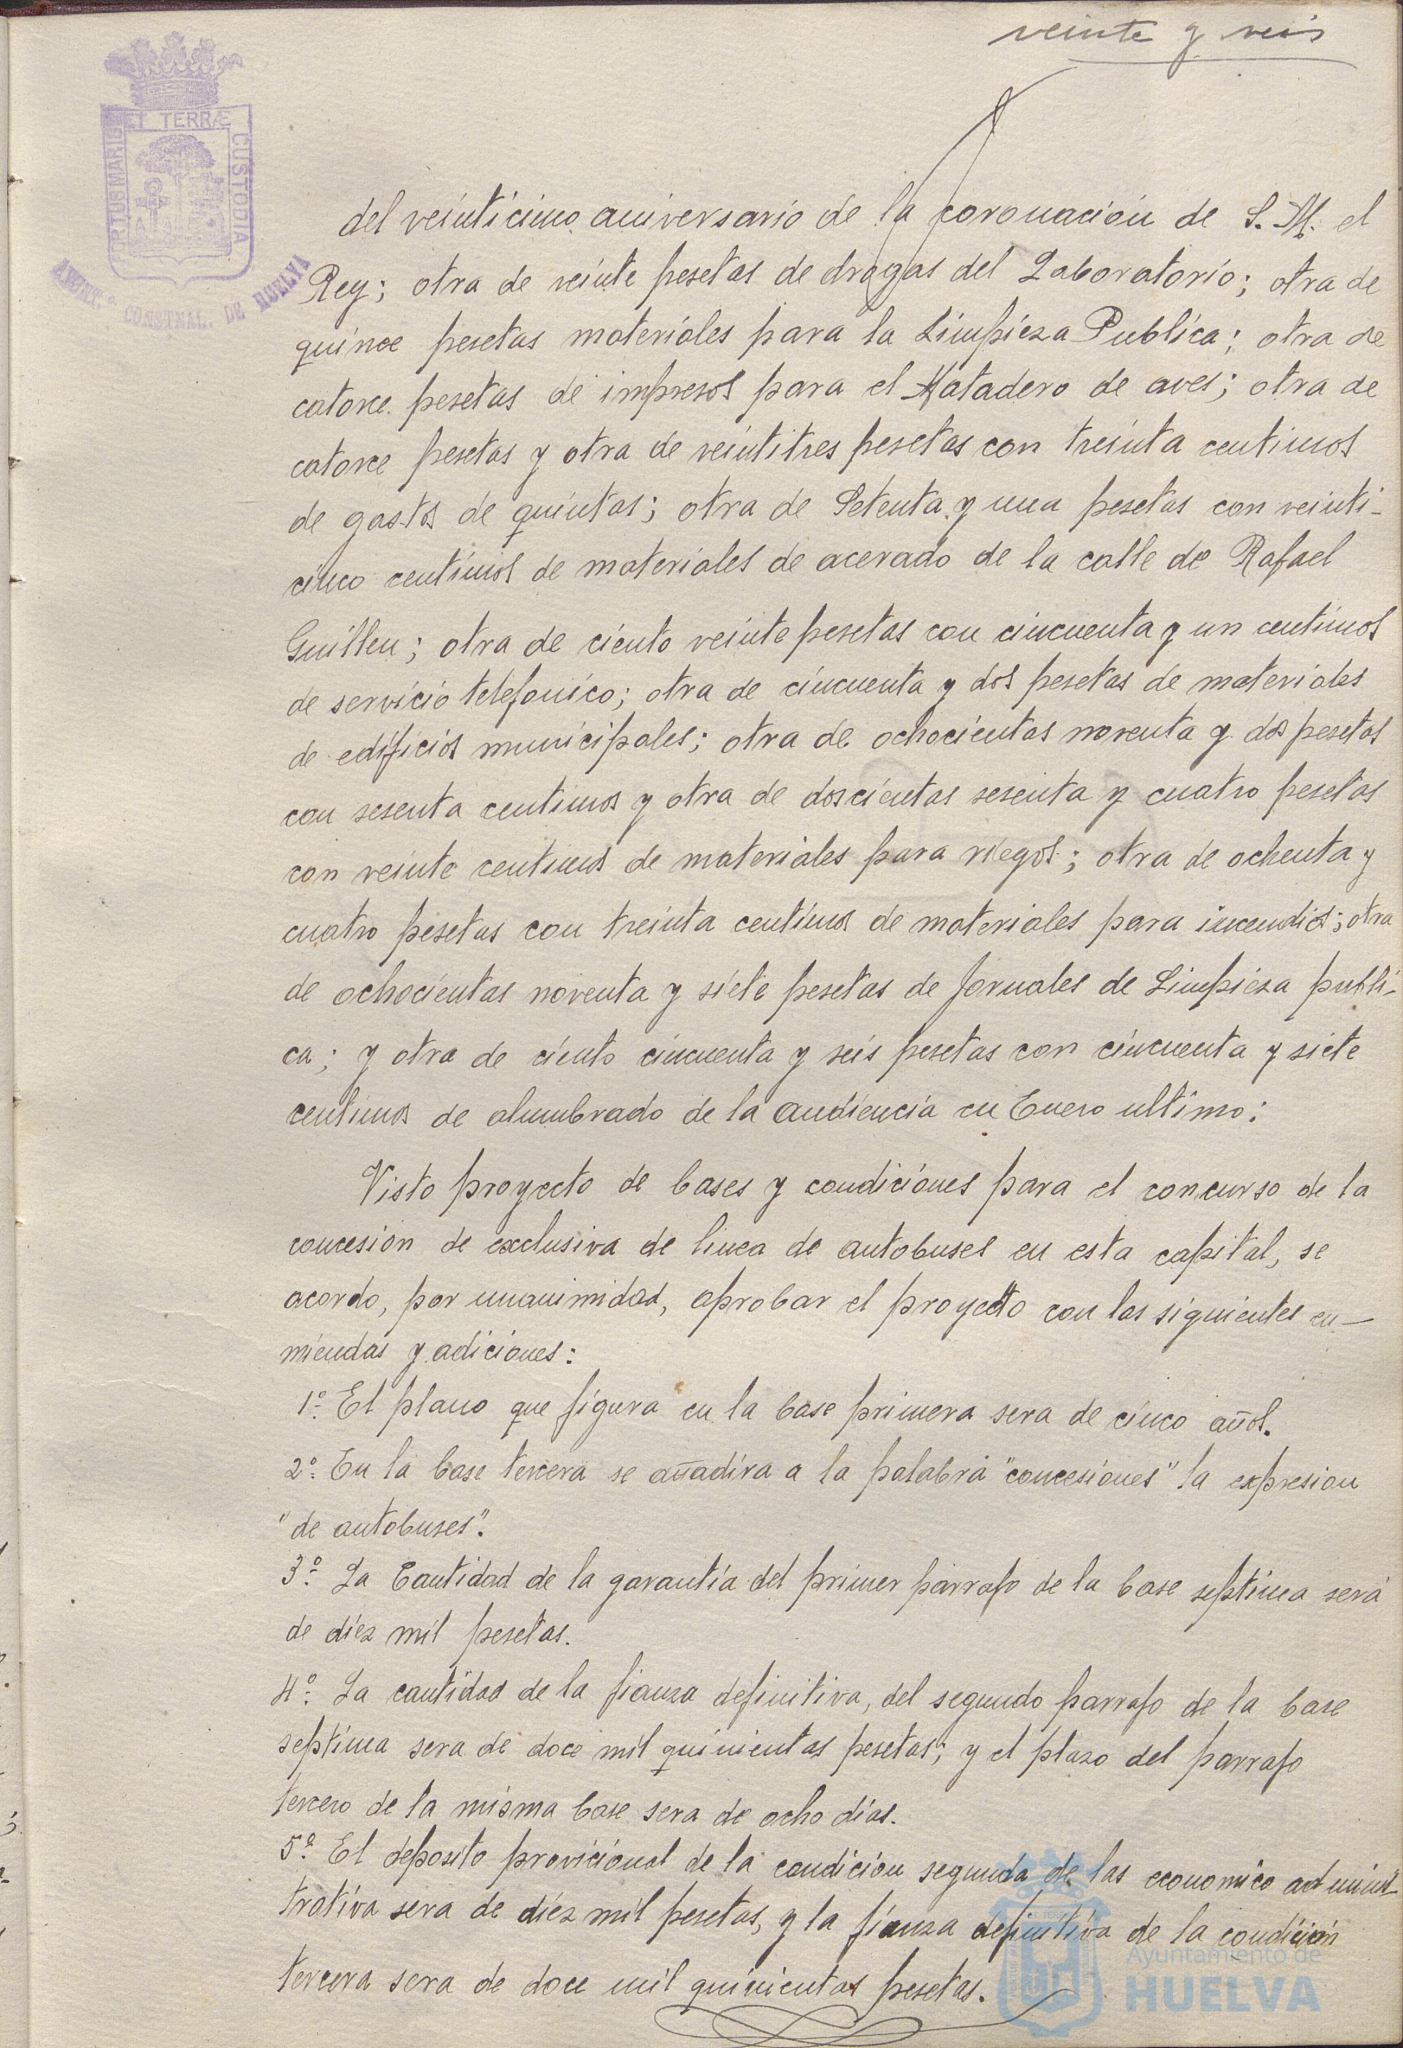 veinte y seis
ET TERRÆ
PORTUS MARIS
CUSTODIA
AYUNT.º CONSTNAL. DE HUELVA
del veinticinco aniversario de la coronación de S. M. el
Rey; otra de veinte pesetas de drogas del Laboratorio; otra de
quince pesetas materiales para la Limpieza Publica; otra de
catorce pesetas de impresos para el Matadero de aves; otra de
catorce pesetas y otra de veintitres pesetas con treinta centimos
de gastos de quintas; otra de Setenta y una pesetas con veinti-
cinco centimos de materiales de acerado de la calle de Rafael
Guillen; otra de ciento veinte pesetas con cincuenta y un centimos
de servicio telefonico; otra de cincuenta y dos pesetas de materiales
de edificios municipales; otra de ochocientas noventa y dos pesetas
con sesenta centimos y otra de doscientas sesenta y cuatro pesetas
con veinte centimos de materiales para riegos; otra de ochenta y
cuatro pesetas con treinta centimos de materiales para incendios; otra
de ochocientas noventa y siete pesetas de Jornales de Limpieza publi-
ca; y otra de ciento cincuenta y seis pesetas con cincuenta y siete
centimos de alumbrado de la audiencia en Enero ultimo:
Visto proyecto de bases y condiciones para el concurso de la
concesión de exclusiva de linea de autobuses en esta capital, se
acordo, por unanimidad, aprobar el proyecto con las siguientes en-
miendas y adiciones:
1º. El plazo que figura en la base primera sera de cinco años.
2º. En la base tercera se añadira a la palabra "concesiones" la expresion
"de autobuses".
3º. La Cantidad de la garantía del primer parrafo de la base septima será
de diez mil pesetas.
4º. La cantidad de la fianza definitiva, del segundo parrafo de la base
septima sera de doce mil quinientas pesetas; y el plazo del parrafo
tercero de la misma base sera de ocho dias.
5º. El deposito provicional de la condicion segunda de las economico adminis-
trativa sera de diez mil pesetas, y la fianza definitiva de la condición
tercera sera de doce mil quinientas pesetas.
Ayuntamiento de
HUELVA